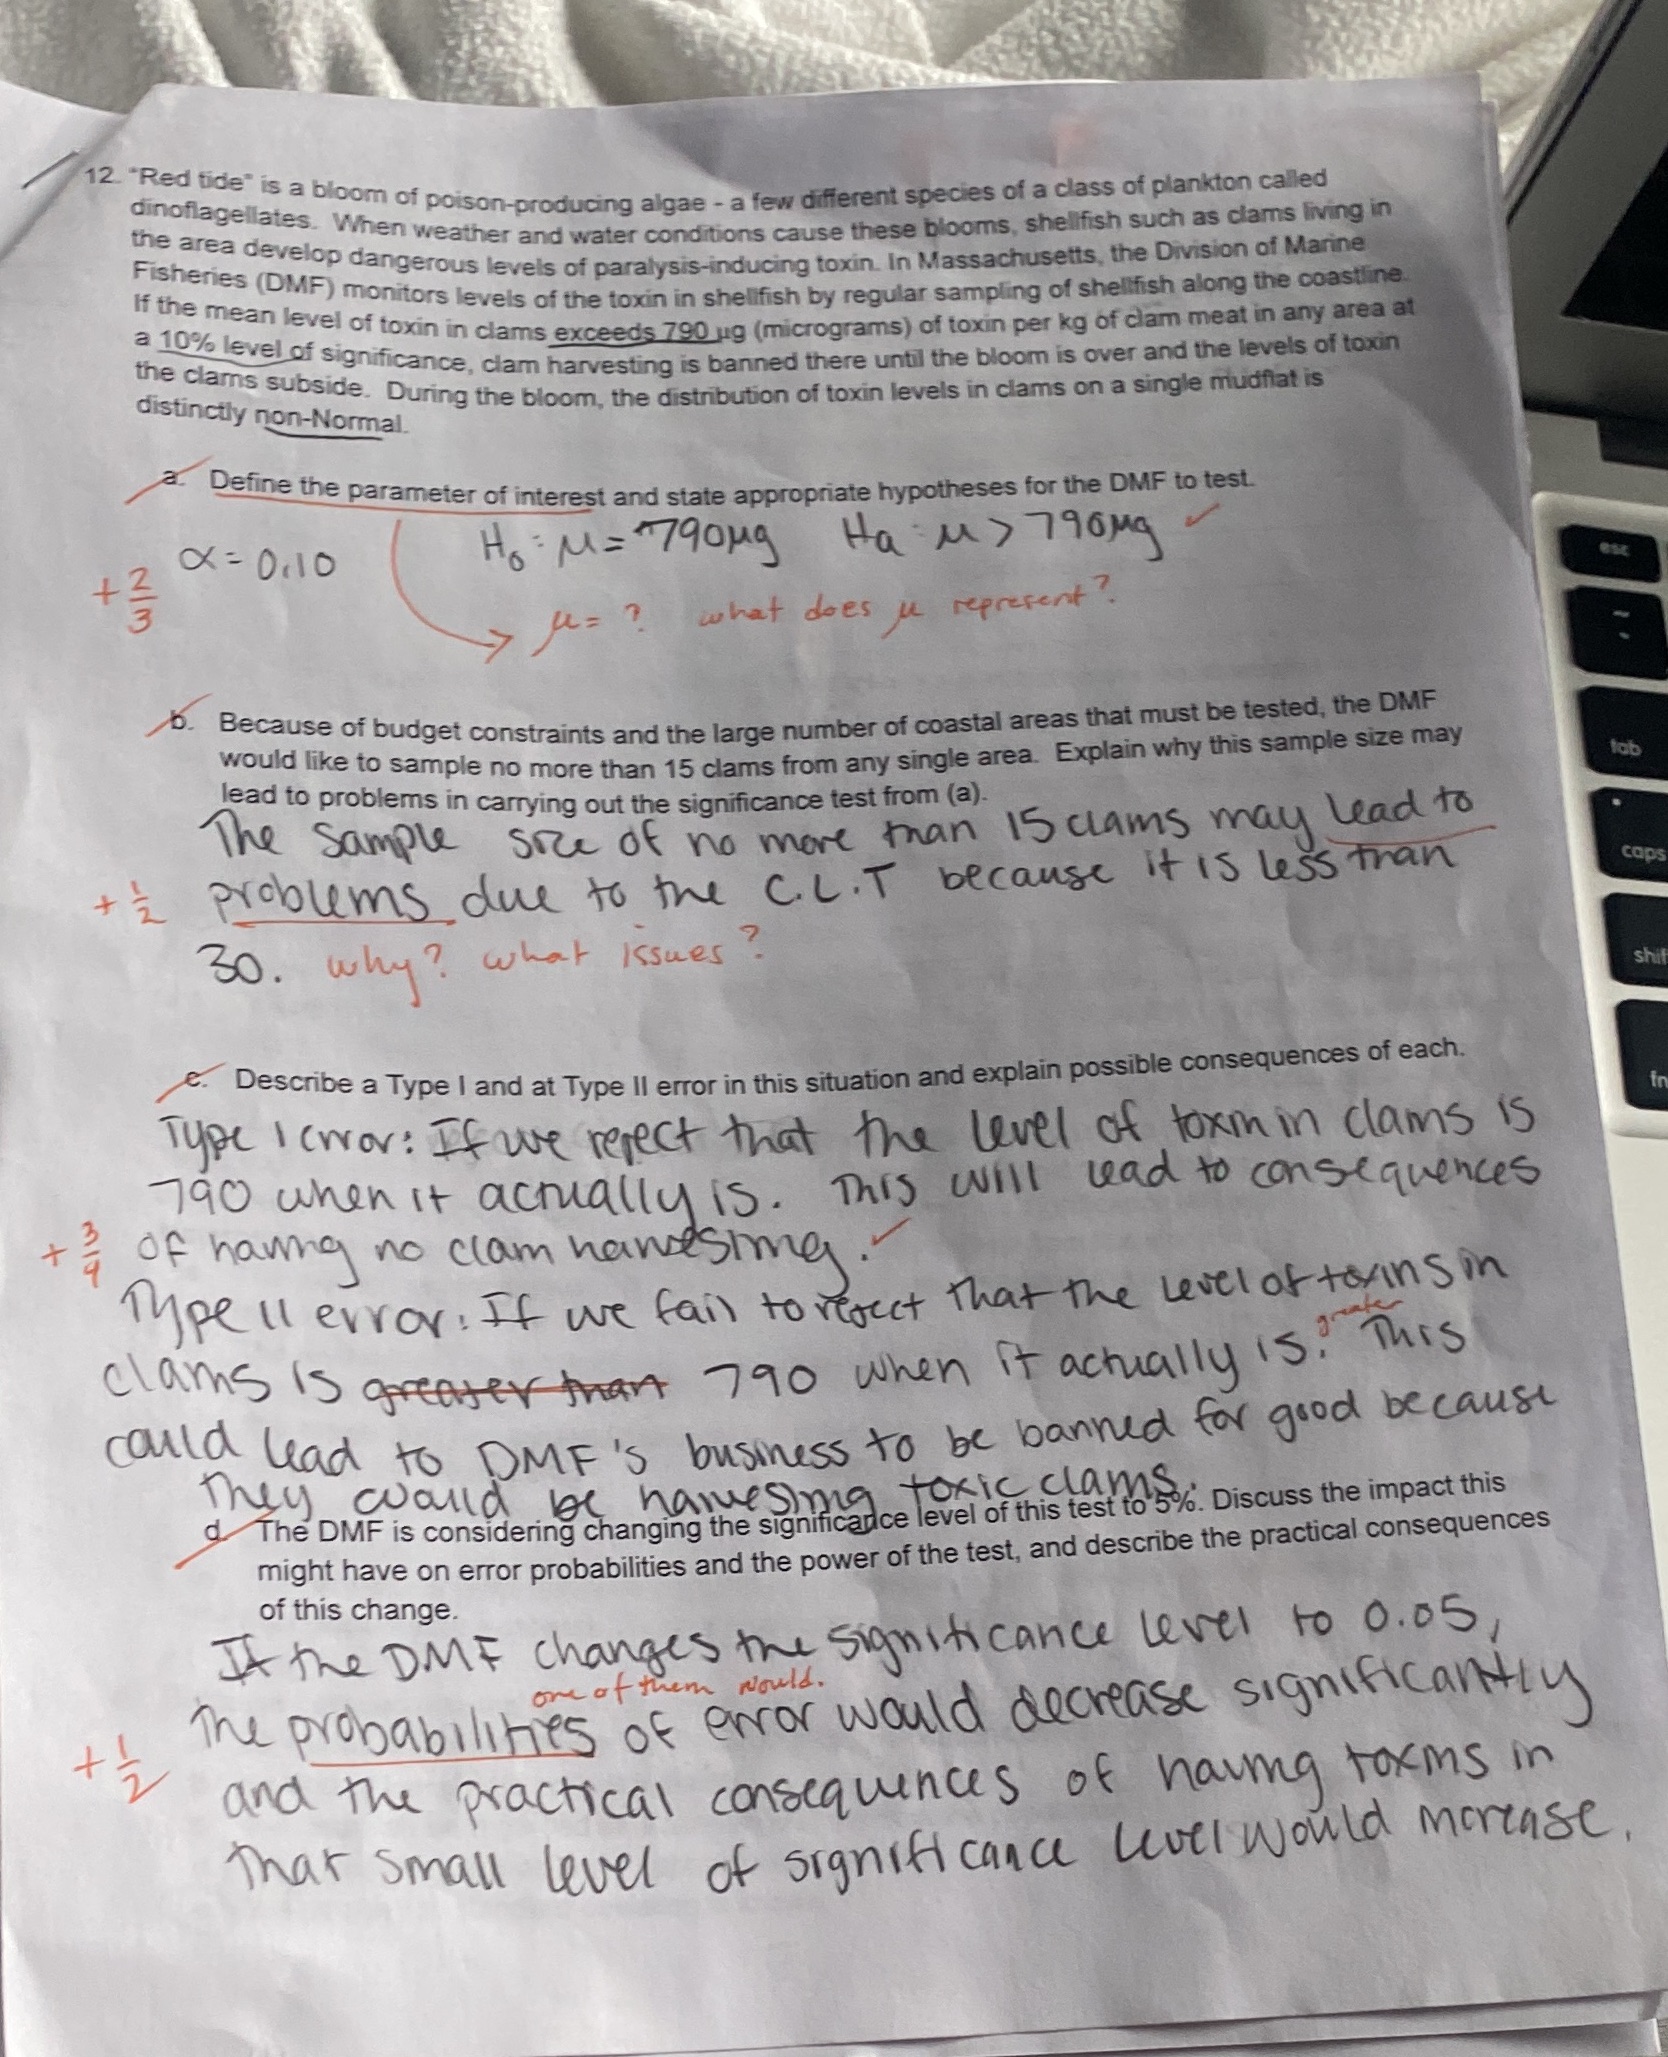 12. "Red tide" is a bloom of poison-producing algae - a few different species of a class of plankton called
dinoflagellates. When weather and water conditions cause these blooms, shellfish such as clams living in
the area develop dangerous levels of paralysis-inducing toxin. In Massachusetts, the Division of Marine
Fisheries (DMF) monitors levels of the toxin in shellfish by regular sampling of shellfish along the coastline.
If the mean level of toxin in clams exceeds 790 µg (micrograms) of toxin per kg of clam meat in any area at
a 10% level of significance, clam harvesting is banned there until the bloom is over and the levels of toxin
the clams subside. During the bloom, the distribution of toxin levels in clams on a single mudflat is
distinctly non-Normal.
a. Define the parameter of interest and state appropriate hypotheses for the DMF to test.
α = 0.10 H₀: µ = 790µg Ha: µ > 790µg ✓
+ 2/3
µ = ? what does µ represent?
b. Because of budget constraints and the large number of coastal areas that must be tested, the DMF
would like to sample no more than 15 clams from any single area. Explain why this sample size may
lead to problems in carrying out the significance test from (a).
The sample size of no more than 15 clams may lead to
+ 1/2 problems due to the C.L.T because it is less than
30. why? what issues?
c. Describe a Type I and at Type II error in this situation and explain possible consequences of each.
Type I error: If we reject that the level of toxin in clams is
790 when it actually is. This will lead to consequences
+ 3/4 of having no clam harvesing. ✓
Type II error: If we fail to reject that the level of toxins in
clams is greater than 790 when it actually is. greater This
could lead to DMF's business to be banned for good because
they would be harvesing toxic clams.
d. The DMF is considering changing the significance level of this test to 5%. Discuss the impact this
might have on error probabilities and the power of the test, and describe the practical consequences
of this change.
If the DMF changes the significance level to 0.05,
one of them would.
the probabilities of error would decrease significantly
+ 1/2 and the practical consequences of having toxins in
that small level of significance level would increase.
esc
~
tab
caps
shif
fn